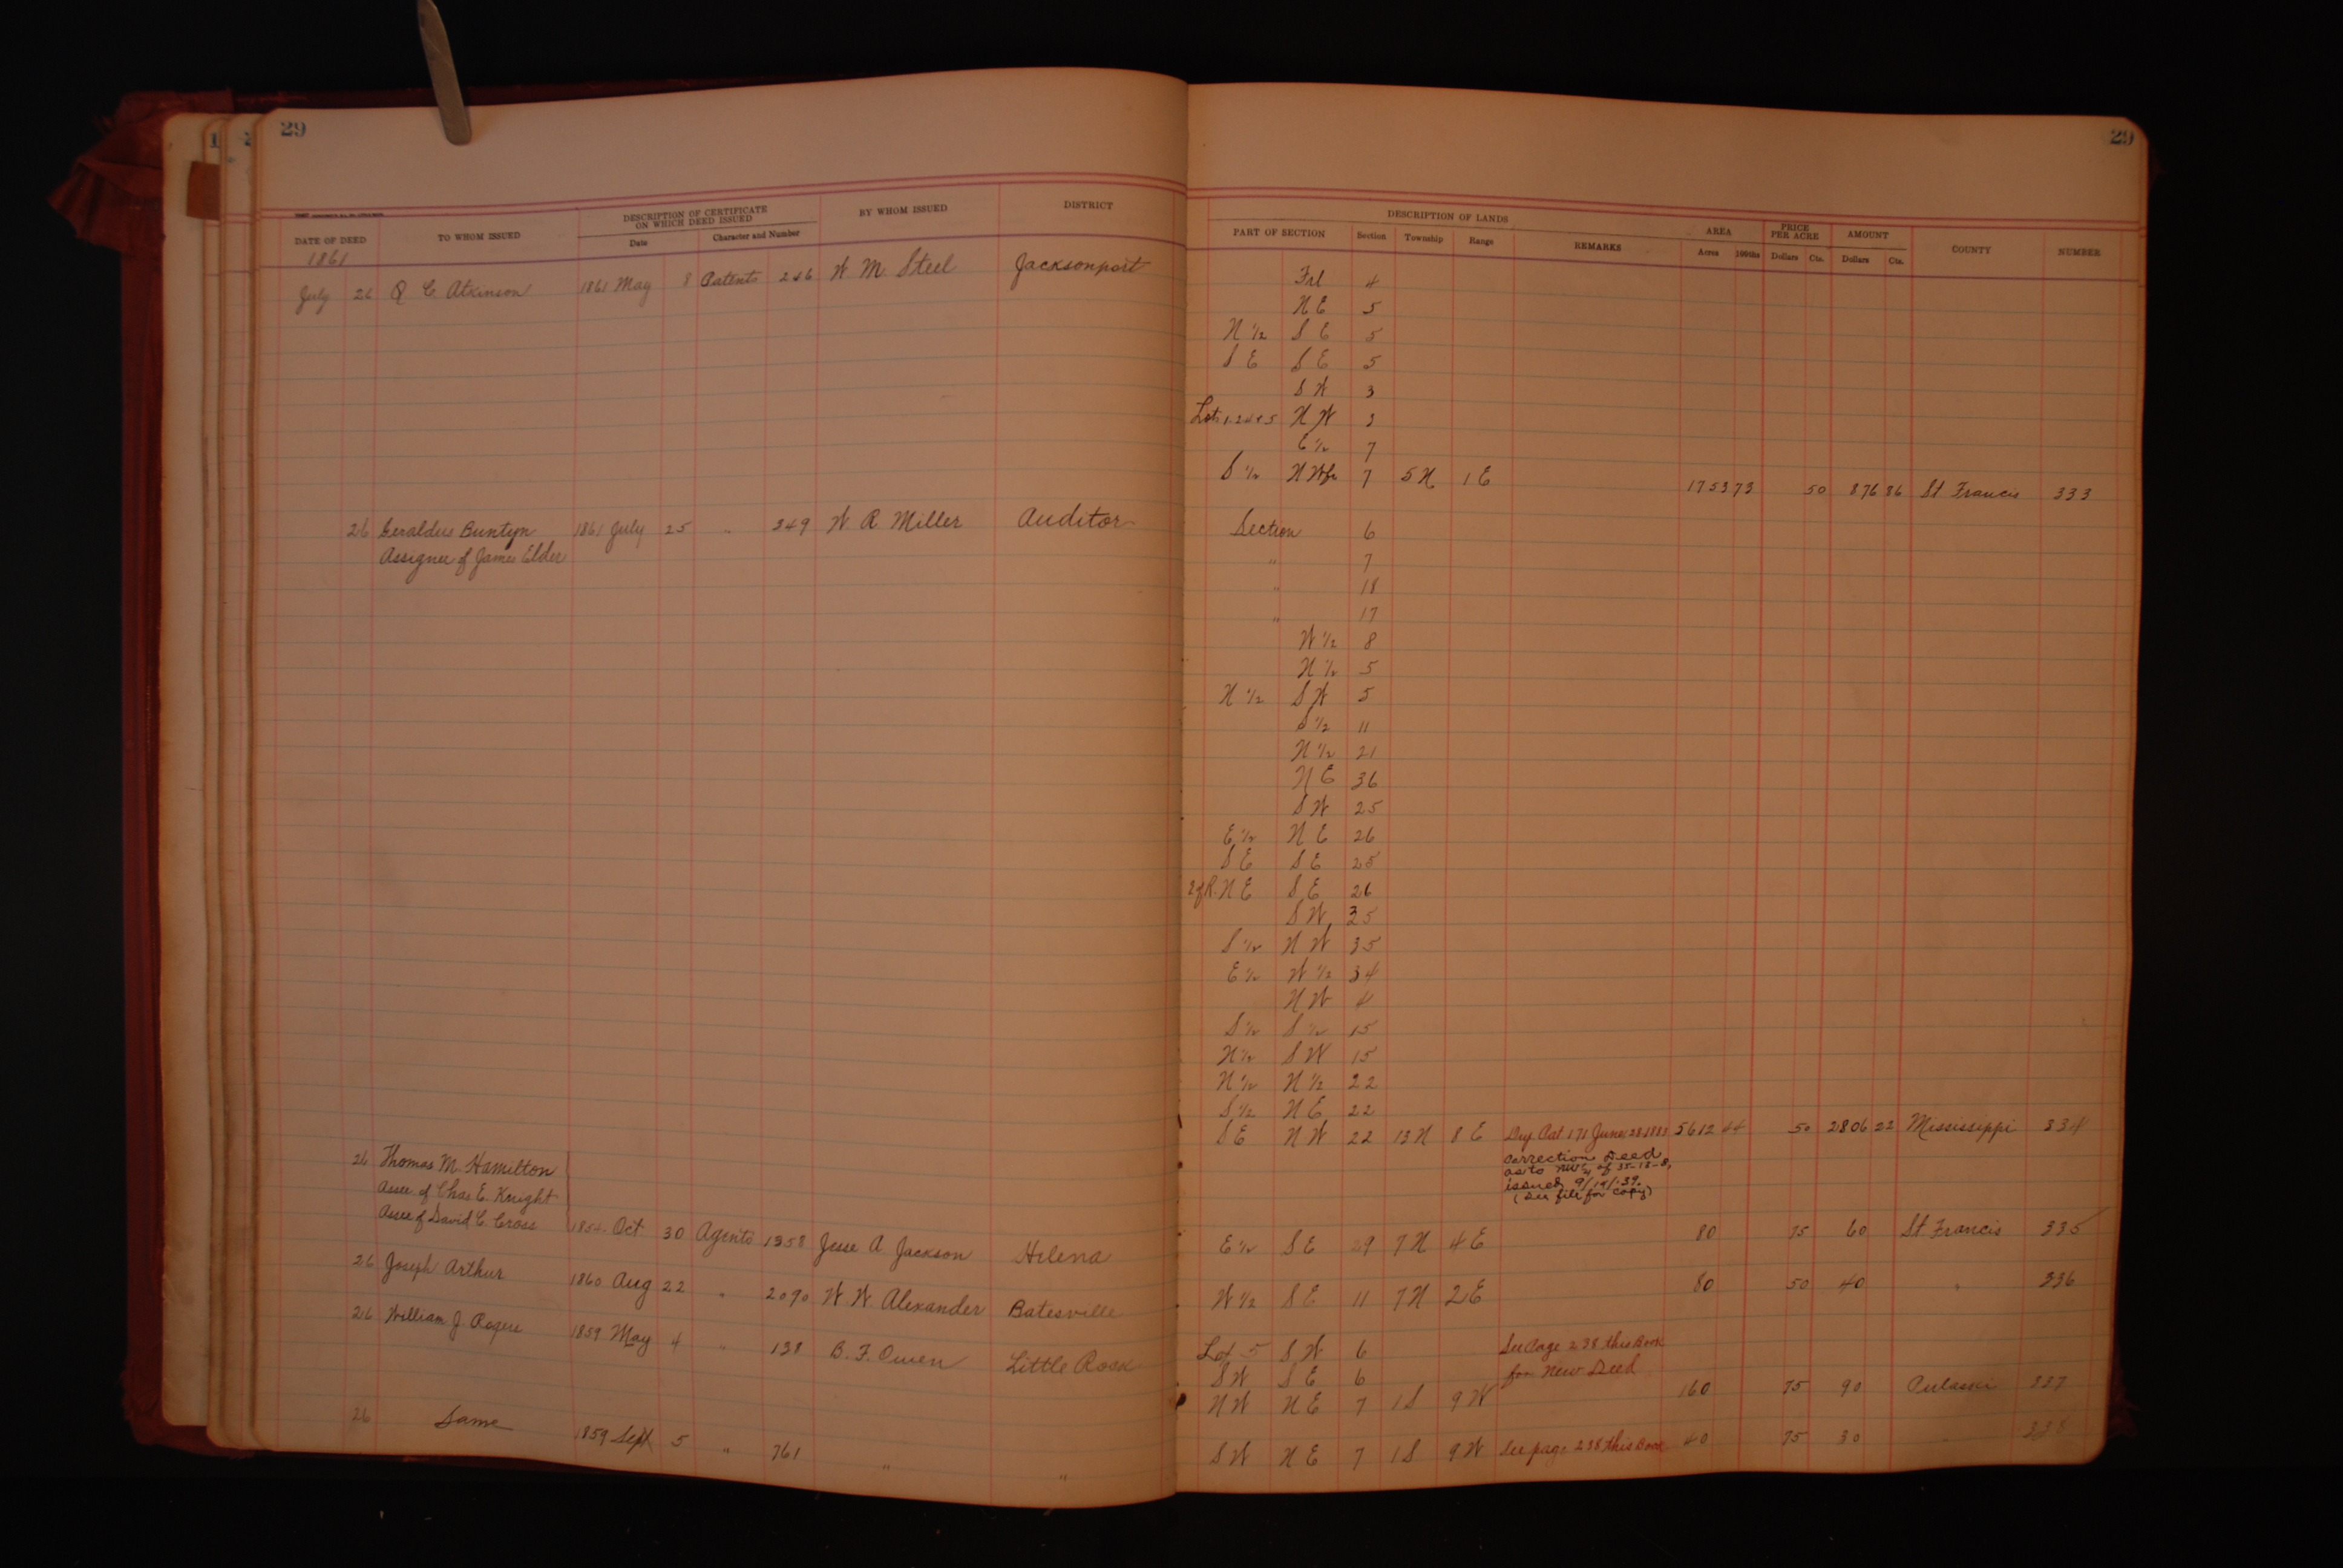 29
DATE OF DEED TO WHOM ISSUED DESCRIPTION OF CERTIFICATE ON WHICH DEED ISSUED BY WHOM ISSUED DISTRICT
Date Character and Number
1861
July 26 Q C. Atkinson 1861 May 8 Patents 246 W M. Steel Jacksonport
26 Geraldus Buntyn 1861 July 25 " 349 W R Miller Auditor
Assignee of James Elder
26 Thomas M. Hamilton
Assee of Chas E. Knight
Assee of David C. Cross 1854 Oct 30 Agents 1358 Jesse A. Jackson Helena
26 Joseph Arthur 1860 Aug 22 " 2090 W W Alexander Batesville
26 William J. Rogers 1859 May 4 " 138 B. F. Owen Little Rock
26 Same 1859 Sept 5 " 761 " "
29
DESCRIPTION OF LANDS AREA PRICE PER ACRE AMOUNT COUNTY NUMBER
PART OF SECTION Section Township Range REMARKS Acres 100ths Dollars Cts. Dollars Cts.
Frl 4
N E 5
N 1/2 S E 5
S E S E 5
S W 3
Lots 1.2.4 & 5 N W 3
E 1/2 7
S 1/2 N W fr 7 5 N 1 E 1753 73 50 876 86 St Francis 333
Section 6
" 7
" 18
" 17
W 1/2 8
N 1/2 5
N 1/2 S W 5
S 1/2 11
N 1/2 21
N E 36
S W 25
E 1/2 N E 26
S E S E 25
N E S E 26
S W 35
S 1/2 N W 35
E 1/2 W 1/2 34
N W 4
S 1/2 S 1/2 15
N 1/2 S W 15
N 1/2 N 1/2 22
S 1/2 N E 22
S E N W 22 13 N 8 E Dup Pat 171 June 28 1883 5612 44 50 2806 22 Mississippi 334
Correction Deed
as to NW 1/4 of 35-13-8,
issued 9/14/39.
(See file for copy)
E 1/2 S E 29 7 N 4 E 80 75 60 St Francis 335
W 1/2 S E 11 7 N 2 E 80 50 40 " 336
Lot 5 S W 6 See Page 238 this Book
S W S E 6 for New Deed
N W N E 7 1 S 9 W 160 75 90 Pulaski 337
S W N E 7 1 S 9 W See page 238 this Book 40 75 30 338